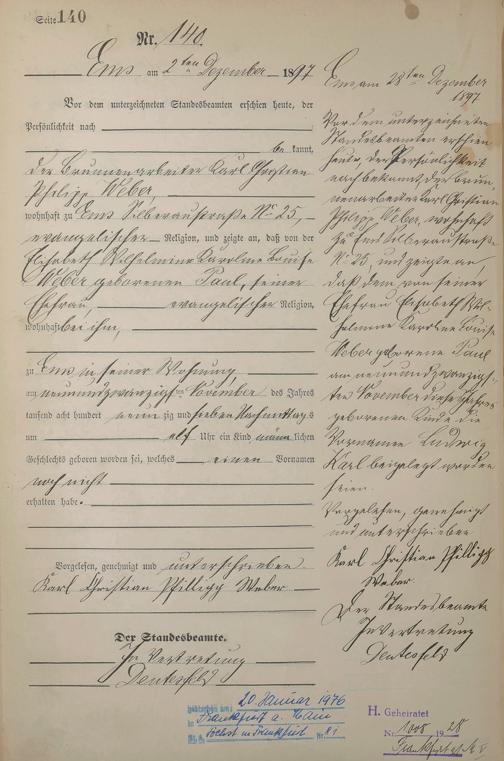 Seite 140
Nr. 140.
Ems am 2ten Dezember 1897
Vor dem unterzeichneten Standesbeamten erschien heute, der
Persönlichkeit nach
be kannt,
der Brunnenarbeiter Karl Christian
Philipp Weber,
wohnhaft zu Ems Silberaustraße No 25,
evangelischer Religion, und zeigte an, daß von der
Elisabeth Wilhelmine Karoline Louise
Weber geborenen Paul, seiner
Ehefrau, evangelischer Religion,
wohnhaft bei ihm,
zu Ems in seiner Wohnung
am neunundzwanzigsten November des Jahres
tausend acht hundert neun zig und sieben Nachmittags
um elf Uhr ein Kind männ lichen
Geschlechts geboren worden sei, welches einen Vornamen
noch nicht
erhalten habe.
Vorgelesen, genehmigt und unterschrieben
Karl Christian Phillipp Weber
Der Standesbeamte.
In Vertretung
Ems, am 28ten Dezember
1897
Vor dem unterzeichneten
Standesbeamten erschien
heute, der Persönlichkeit
nach bekannt, der Brun-
nenarbeiter Karl Christian
Philipp Weber, wohnhaft
zu Ems Silberaustraße
No 25, und zeigte an,
daß dem von seiner
Ehefrau Elisabeth Wil-
helmine Karoline Louise
Weber geborene Paul
am neunundzwanzig-
sten November dieses Jahres
geborenen Kinde die
Vornamen Ludwig
Karl beigelegt worden
seien.
Vorgelesen, genehmigt
und unterschrieben
Karl Christian Phillipp
Weber.
Der Standesbeamte
In Vertretung
20. Januar 1976
in Frankfurt a. Main
Höchst in Frankfurt Nr. 81
H. Geheiratet
Nr. 1008 1928
Frankfurt